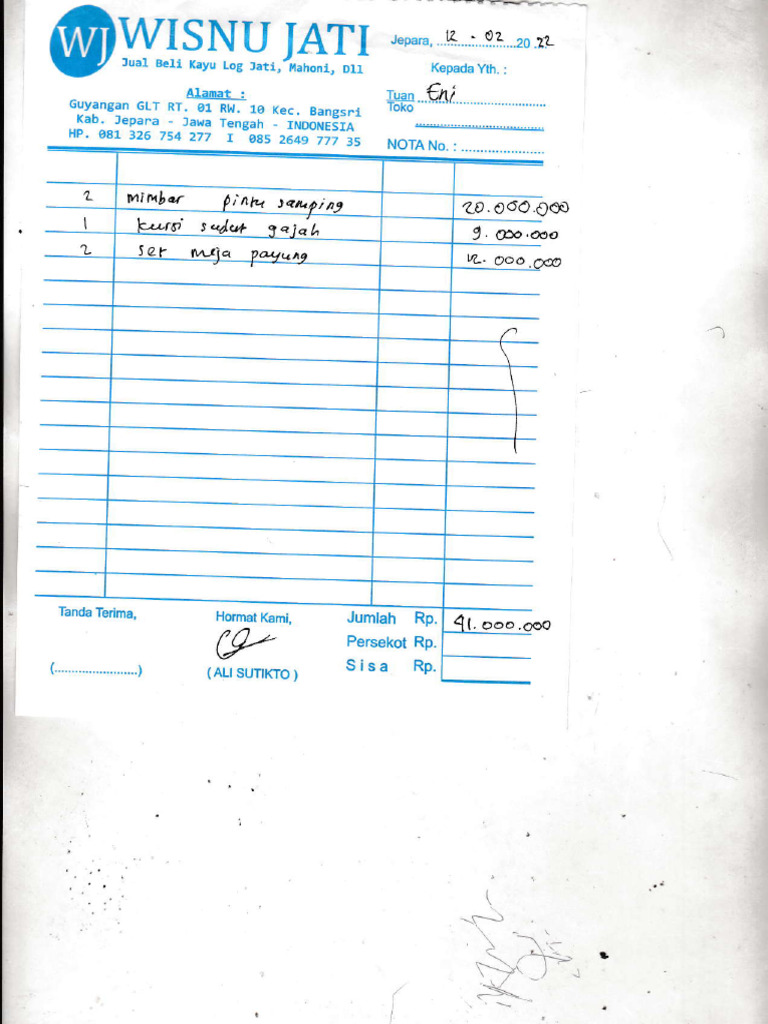 WJ WISNU JATI
Jual Beli Kayu Log Jati, Mahoni, Dll
Alamat :
Guyangan GLT RT. 01 RW. 10 Kec. Bangsri
Kab. Jepara - Jawa Tengah - INDONESIA
HP. 081 326 754 277 I 085 2649 777 35
Jepara, 12 - 02 20 22
Kepada Yth. :
Tuan Eni
Toko
NOTA No. :
2 mimbar pintu samping 20.000.000
1 kursi sudut gajah 9.000.000
2 set meja payung 12.000.000
Tanda Terima, Hormat Kami, Jumlah Rp. 41.000.000
Persekot Rp.
(........................) ( ALI SUTIKTO ) Sisa Rp.